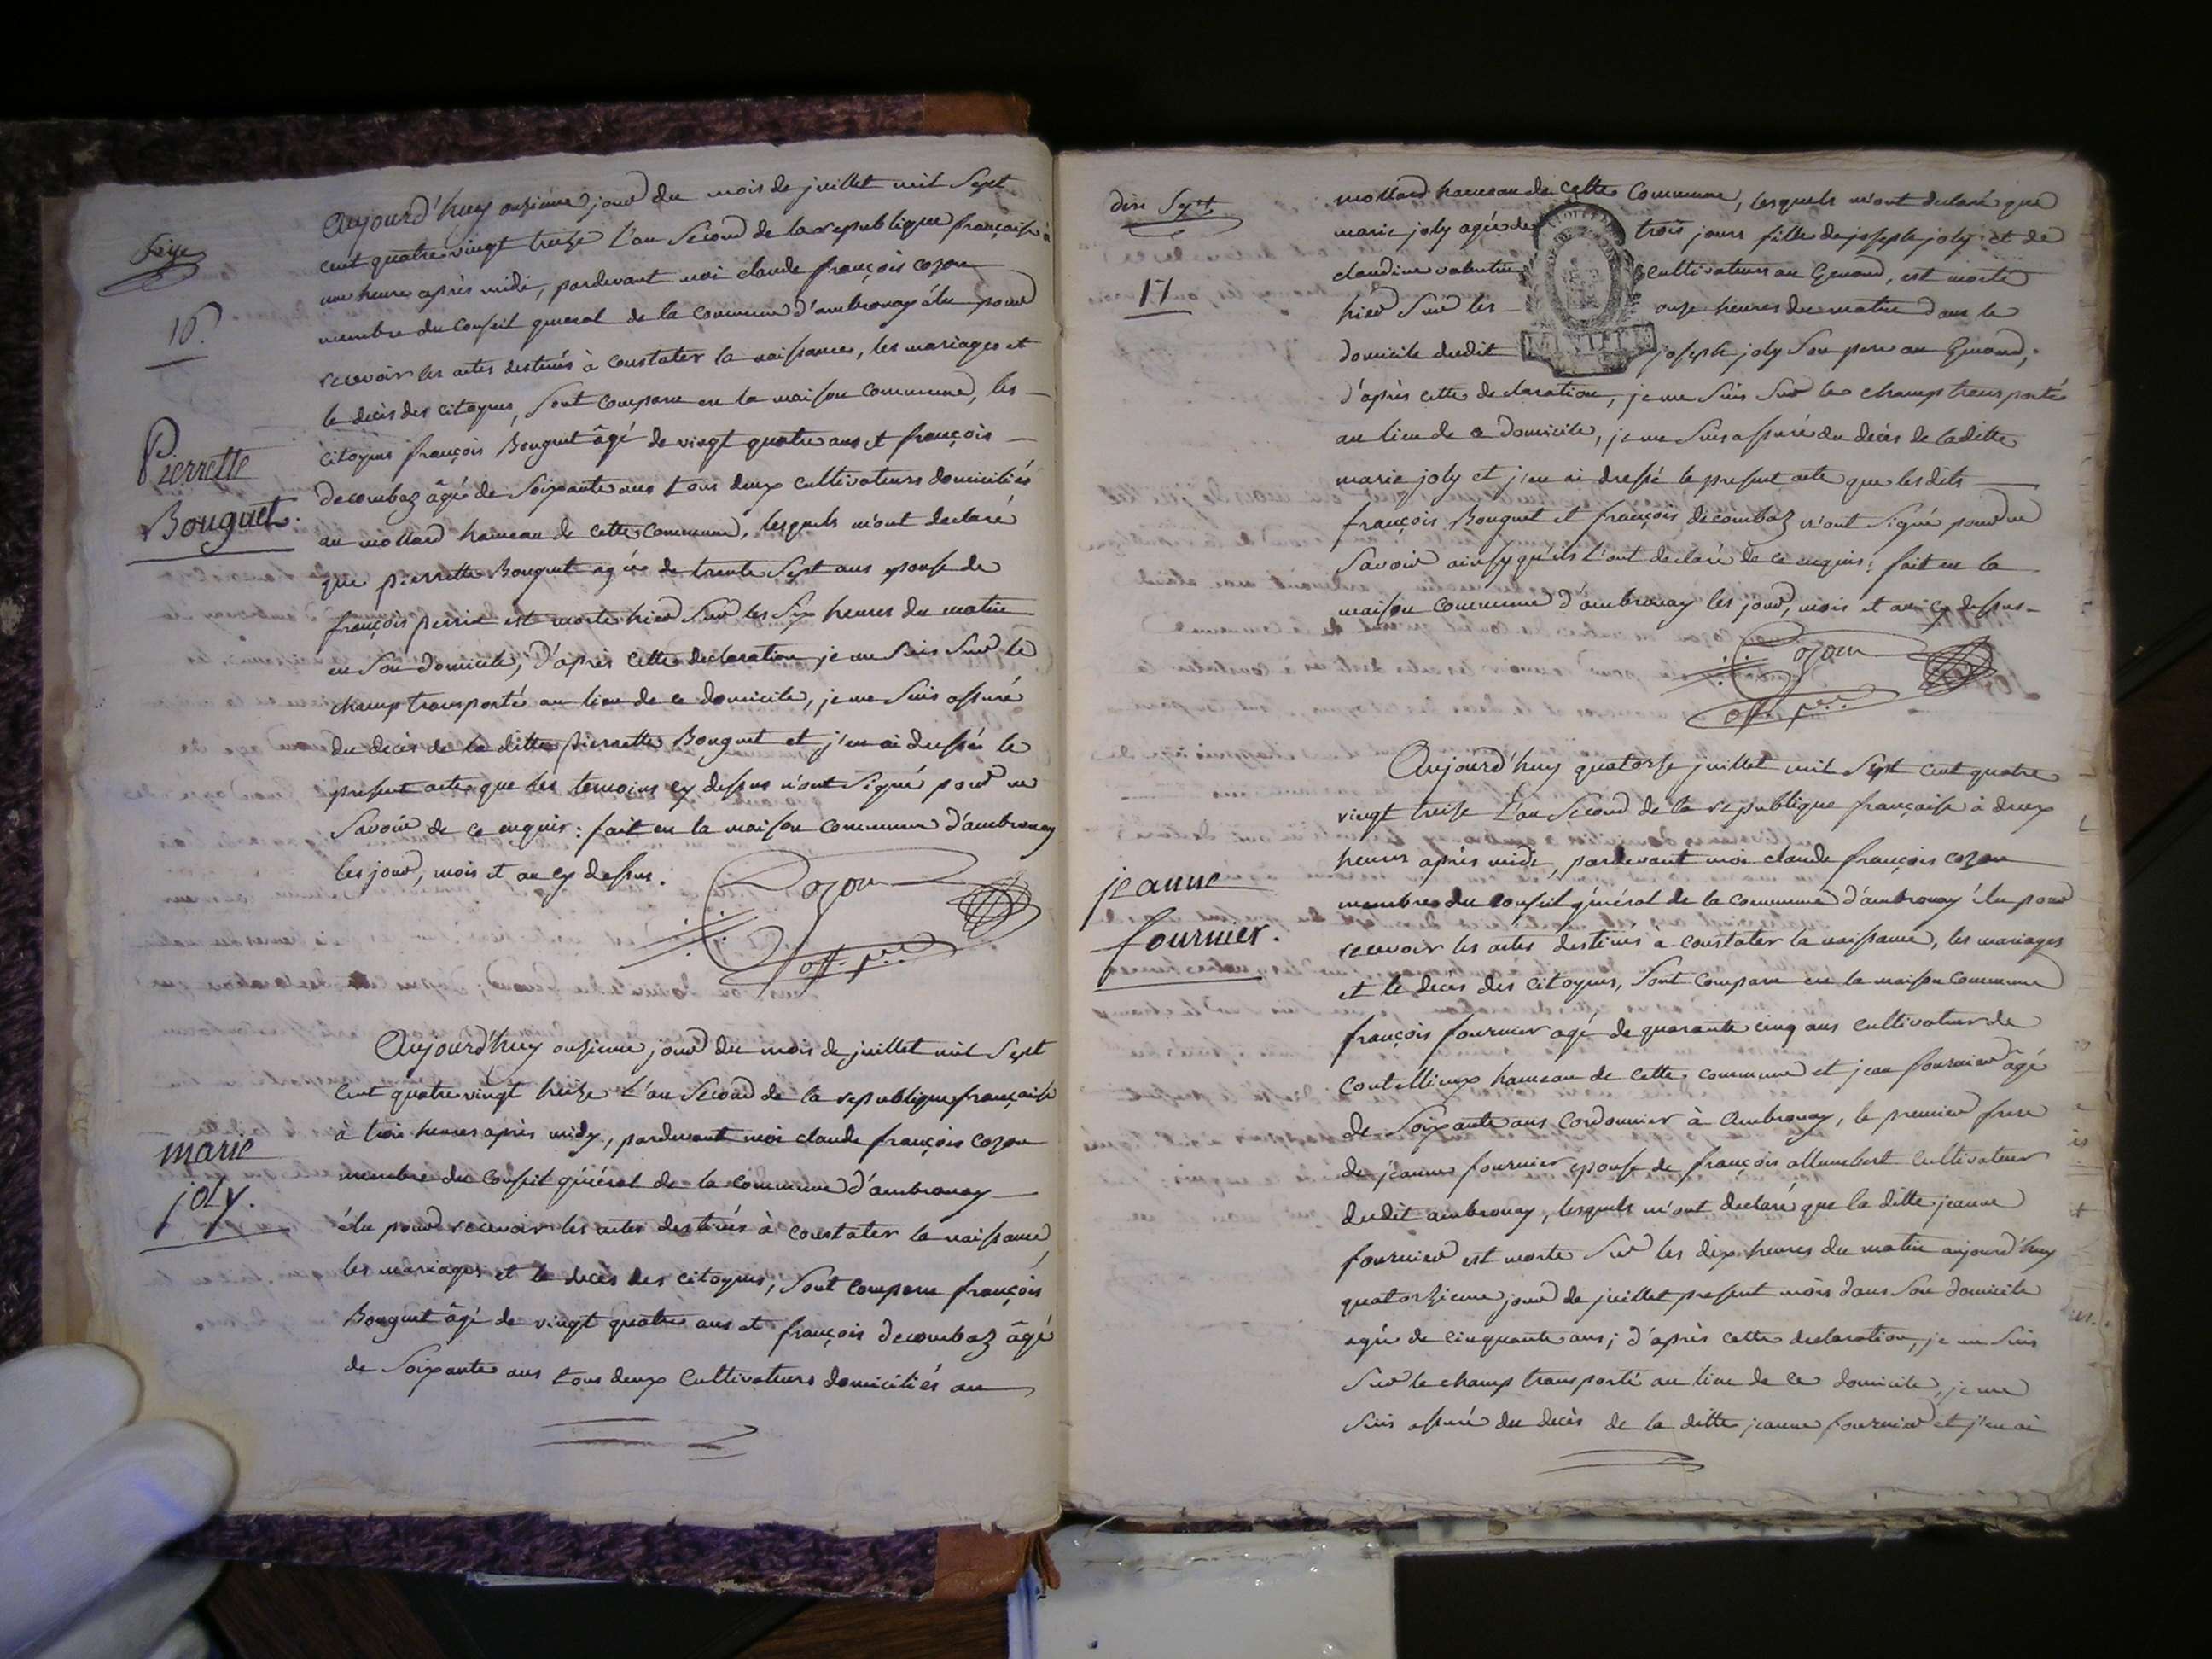 Seize
16.
Aujourd'huy onzieme jour du mois de juillet mil Sept
cent quatre vingt treize L'an Second de la republique française à
une heure après midi, pardevant moi claude françois cozon
membre du conseil general de la commune d'ambronay élu pour
recevoir les actes destinés à constater la naissance, les mariages et
le décès des citoyens, Sont comparu en la maison commune, les
citoyens françois Bouguet âgé de vingt quatre ans et françois
decombaz âgé de Soixante ans tous deux cultivateurs domiciliés
Pierrette
Bouguet.
au mollard hameau de cette commune, lesquels m'ont declaré
que pierrette Bouguet agée de trente Sept ans epouse de
françois perrin est morte hier Sur les Six heures du matin
en Son domicile, D'après cette declaration je me Suis Sur le
champ transporté au lieu de ce domicile, je me Suis assuré
du décès de la ditte pierrette Bouguet et j'en ai dressé le
present acte que les temoins cy dessus n'ont Signé pour ne
Savoir de ce enquis : fait en la maison commune d'ambronay
les jour, mois et an cy dessus.
Cozon
off. p.er
Aujourd'huy onzieme jour du mois de juillet mil Sept
Cent quatre vingt treize L'an Second de la republique française
à trois heures après midy, pardevant moi claude françois cozon
marie
joly.
membre du conseil général de la commune d'ambronay
élu pour recevoir les actes destinés à constater la naissance,
les mariages et le décès des citoyens, Sont comparu françois
Bouguet âgé de vingt quatre ans et françois decombaz âgé
de Soixante ans tous deux Cultivateurs domiciliés au
dix Sept
17
mollard hameau de cette Commune, lesquels m'ont declaré que
marie joly agée de trois jours fille de joseph joly et de
claudine valentin cultivateurs au Genoud, est morte
hier Sur les onze heures du matin dans le
domicile dudit joseph joly Son pere au Genoud;
d'après cette declaration, je me Suis Sur le champ transporté
au lieu de ce domicile, je me Suis assuré du décès de ladite
marie joly et j'en ai dressé le present acte que lesdits
françois Bouguet et françois decombaz n'ont Signé pour ne
Savoir ainsy qu'ils L'ont declaré de ce enquis : fait en la
maison commune d'ambronay les jour, mois et an cy dessus
Cozon
off. p.er
Aujourd'huy quatorze juillet mil Sept cent quatre
vingt treize L'an Second de la republique française à deux
heures après midi, pardevant moi claude françois cozon
jeanne
fournier.
membre du conseil général de la commune d'ambronay élu pour
recevoir les actes destinés à constater la naissance, les mariages
et le décès des citoyens, Sont comparu en la maison commune
françois fournier agé de quarante cinq ans cultivateur de
Coutellieux hameau de cette commune et jean fournier âgé
de Soixante ans cordonnier à Ambronay, le premier frere
de jeanne fournier epouse de françois allumbert cultivateur
dudit ambronay, lesquels m'ont declaré que la ditte jeanne
fournier est morte Sur les dix heures du matin aujourd'huy
quatorzieme jour de juillet present mois dans Son domicile
agée de cinquante ans; d'après cette declaration, je me Suis
Sur le champ transporté au lieu de ce domicile, je me
Suis assuré du décès de la ditte jeanne fournier et j'en ai